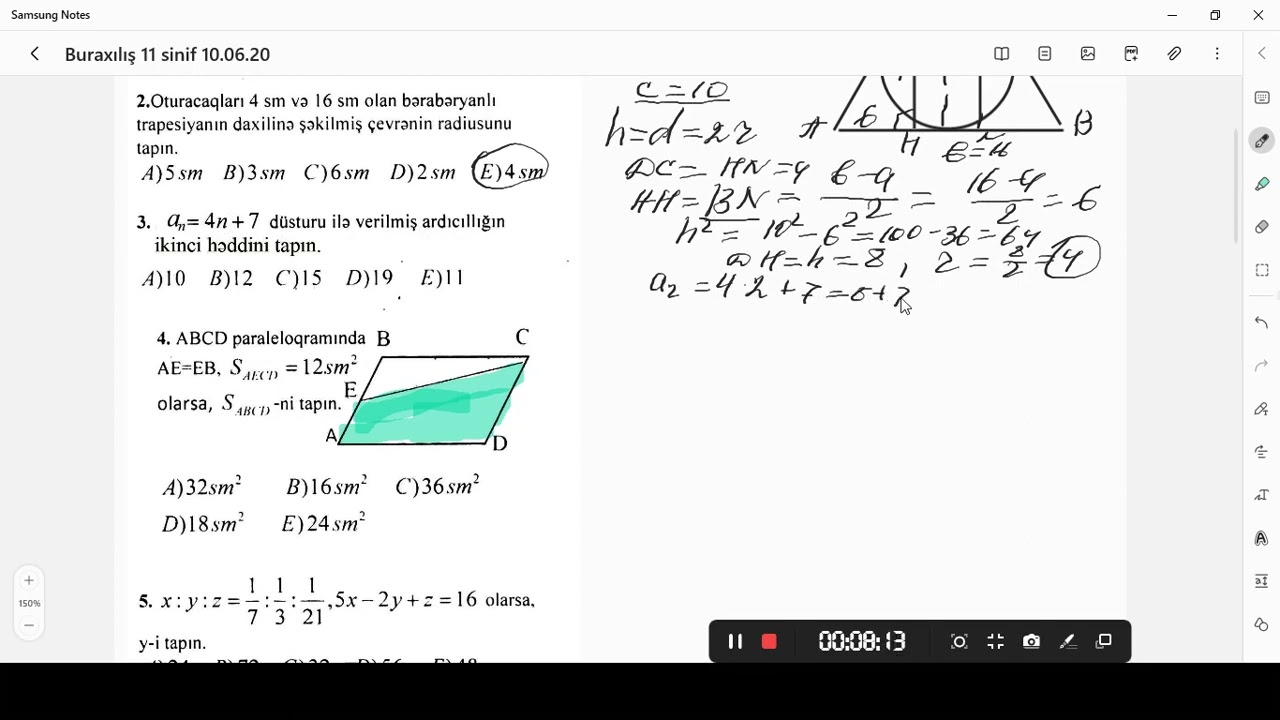 Samsung Notes
Buraxılış 11 sinif 10.06.20
2.Oturacaqları 4 sm və 16 sm olan bərabəryanlı
trapesiyanın daxilinə şəkilmiş çevrənin radiusunu
tapın.
A)5sm B)3sm C)6sm D)2sm E)4sm
3. aₙ= 4n+7 düsturu ilə verilmiş ardıcıllığın
ikinci həddini tapın.
A)10 B)12 C)15 D)19 E)11
4. ABCD paraleloqramında
AE=EB, S_AECD = 12sm²
olarsa, S_ABCD -ni tapın.
B
C
E
A
D
A)32sm² B)16sm² C)36sm²
D)18sm² E)24sm²
5. x : y : z = 1/7 : 1/3 : 1/21 ,5x − 2y + z = 16 olarsa,
y-i tapın.
c = 10
h=d=2r
A
6
H
B
DC = HN = 4
AH = BN = (b-a)/2 = (16-4)/2 = 6
h² = 10² - 6² = 100 - 36 = 64
DH = h = 8, r = 8/2 = 4
a₂ = 4·2 + 7 = 8 + 7
150%
00:08:13